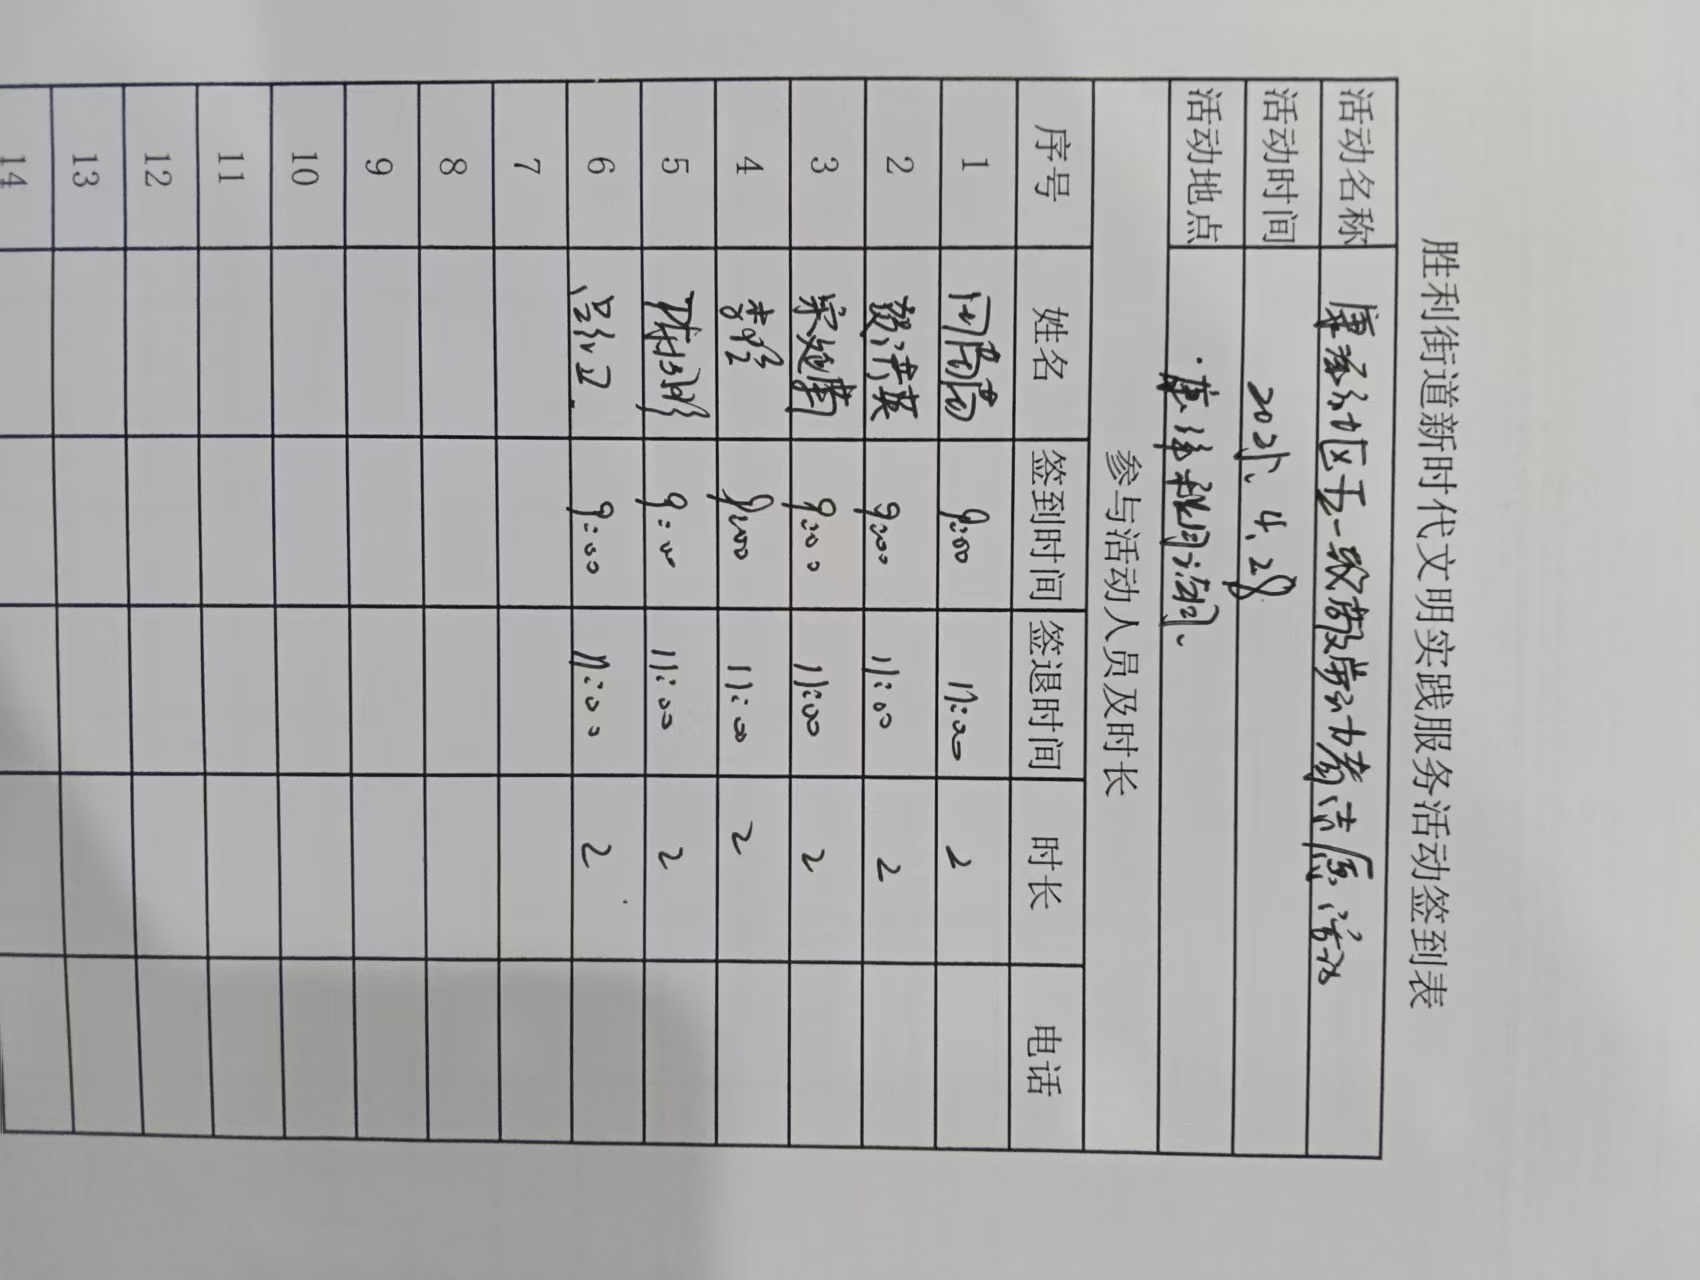 胜利街道新时代文明实践服务活动签到表
活动名称 康泽社区五一致敬劳动者志愿活动
活动时间 2025.4.28
活动地点 康泽
参与活动人员及时长
序号 姓名 签到时间 签退时间 时长 电话
1 9:00 11:00 2
2 贺洪英 9:00 11:00 2
3 9:00 11:00 2
4 9:00 11:00 2
5 9:00 11:00 2
6 9:00 11:00 2
7
8
9
10
11
12
13
14